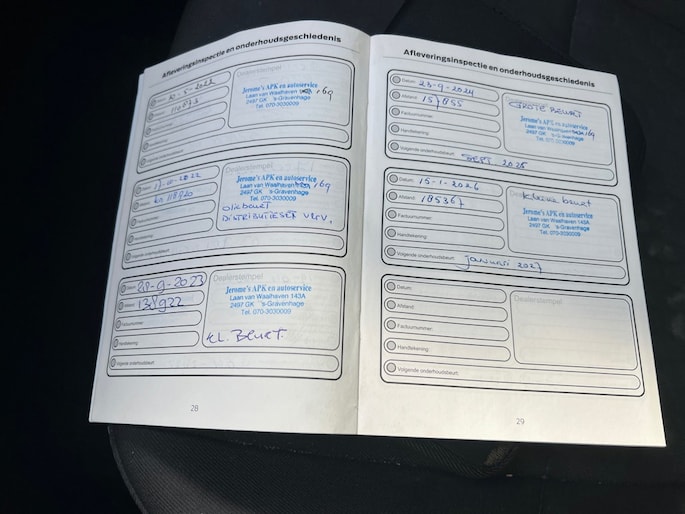 Afleveringsinspectie en onderhoudsgeschiedenis
Datum:
Dealerstempel
Jerome's APK en autoservice
Laan van Waalhaven 169
2497 GK 's-Gravenhage
Tel. 070-3030009
Datum: 2022
Dealerstempel
Jerome's APK en autoservice
Laan van Waalhaven 169
2497 GK 's-Gravenhage
Tel. 070-3030009
oliebeurt
DISTRIBUTIESET VERV.
Volgende onderhoudsbeurt:
Datum: 28-9-2023
Afstand:
Factuurnummer:
Handtekening:
Volgende onderhoudsbeurt:
Dealerstempel
Jerome's APK en autoservice
Laan van Waalhaven 143A
2497 GK 's-Gravenhage
Tel. 070-3030009
KL. Beurt.
28
Afleveringsinspectie en onderhoudsgeschiedenis
Datum: 23-9-2024
Afstand: 157855
Factuurnummer:
Handtekening:
Volgende onderhoudsbeurt: SEPT. 2025
GROTE BEURT
Jerome's APK en autoservice
Laan van Waalhaven 169
2497 GK 's-Gravenhage
Tel. 070-3030009
Datum: 15-1-2026
Afstand: 185367
Factuurnummer:
Handtekening:
Volgende onderhoudsbeurt: januari 2027
Kleine beurt
Jerome's APK en autoservice
Laan van Waalhaven 145A
2497 GK 's-Gravenhage
Tel. 070-3030009
Datum:
Afstand:
Factuurnummer:
Handtekening:
Volgende onderhoudsbeurt:
Dealerstempel
29